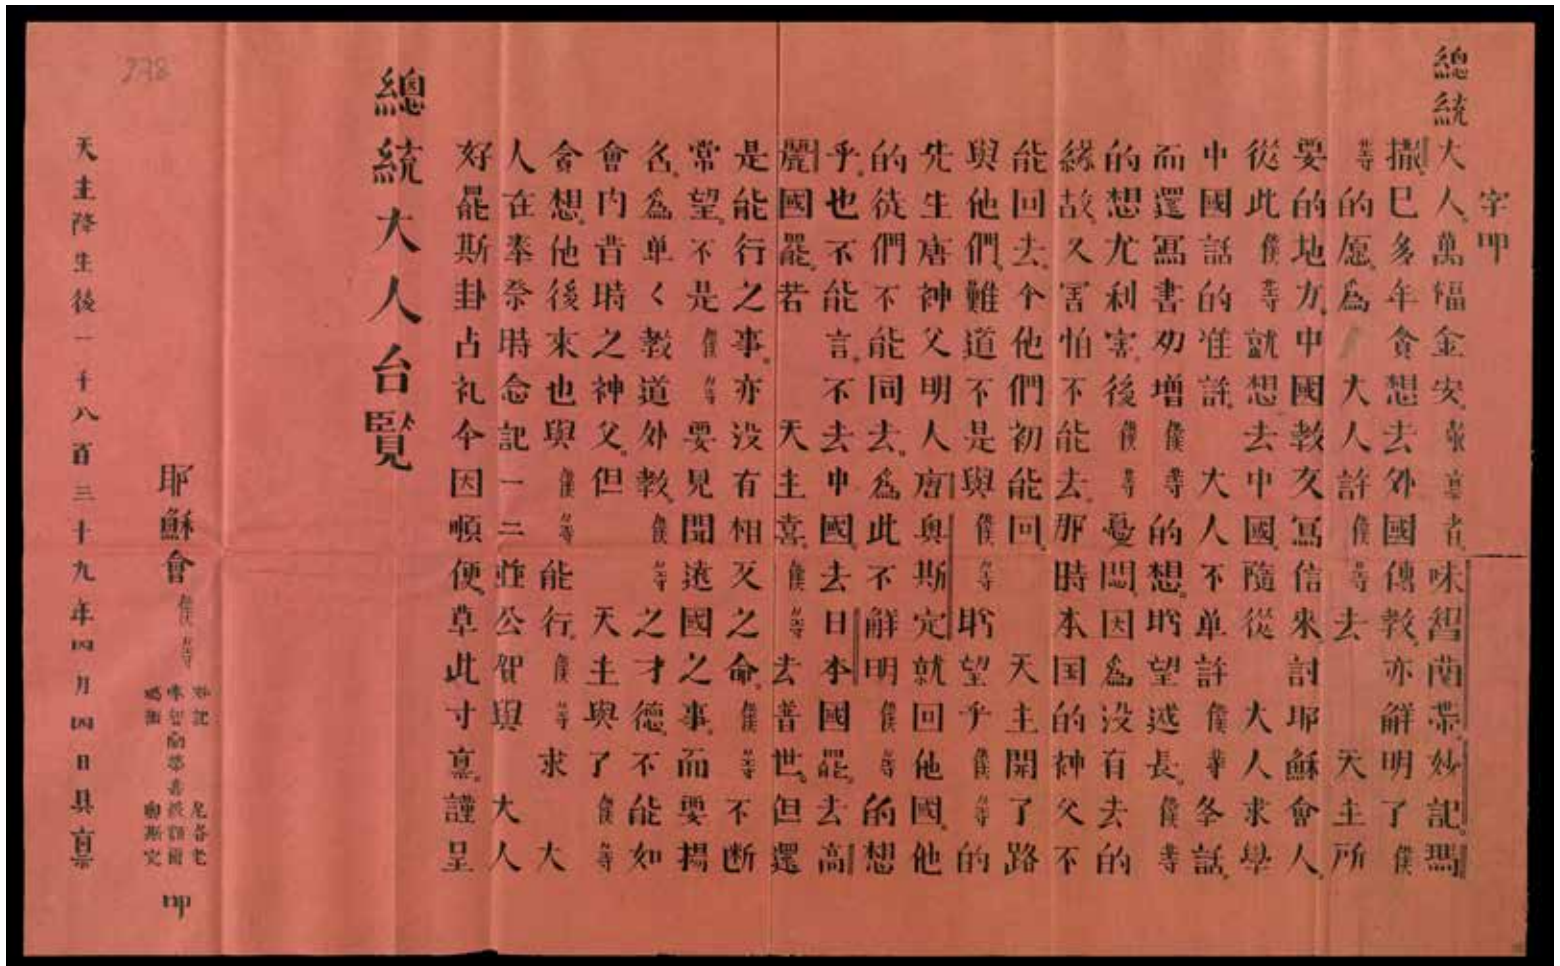 字叩
總統大人。萬福金安。兹稟者。味智蘭蒂妙記。瑪
撒巳多年貪想去外國傳教。亦觧明了僕
等的愿。為大人許僕等去天主所
要的地方。中國教友冩信來討耶穌會人。
從此僕等就想去中國。隨從大人求學
中國話的准許。大人不单許僕等冬話。
而還冩書劝增僕等的想。盼望述長。僕等
的想尤利害。後僕等憂悶。因為没有去的
緣故。又害怕不能去。那時本国的神父不
能回去。个他們初能回。天主開了路
與他們。難道不是與僕等盼望乎僕等的
先生唐神父明人唐奥斯定就回他國。他
的徒們不能同去。為此不觧明僕等的想
乎。也不能言。不去中國。去日本國罷。去高
麗國罷。若天主喜。僕等去普世。但還
是能行之事。亦没有相反之命。僕等不断
常望。不是僕等要見聞遠國之事。而要揚
名。為单々教道外教。僕等之才德。不能如
會內昔時之神父。但天主與了僕等
會想。他後來也與僕等能行。僕等求大
人在奉祭時念記一二並公賀與大人
好罷斯卦占礼今因順便。草此寸稟。謹呈
總統大人台覽
耶穌會僕等
妙記
味智蘭蒂
瑪撒
叩
天主降生後一千八百三十九年四月四日具稟
278